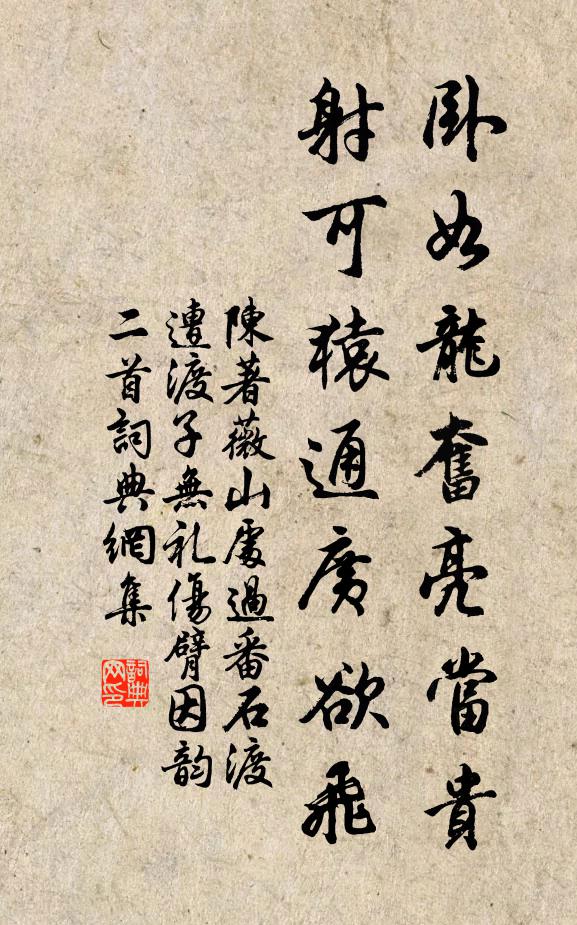 臥如龍奮亮當貴
射可猿通廣欲飛
陳著薇山處過番石渡
遭渡子無礼傷臂因韵
二首詞典網集
詞典网印